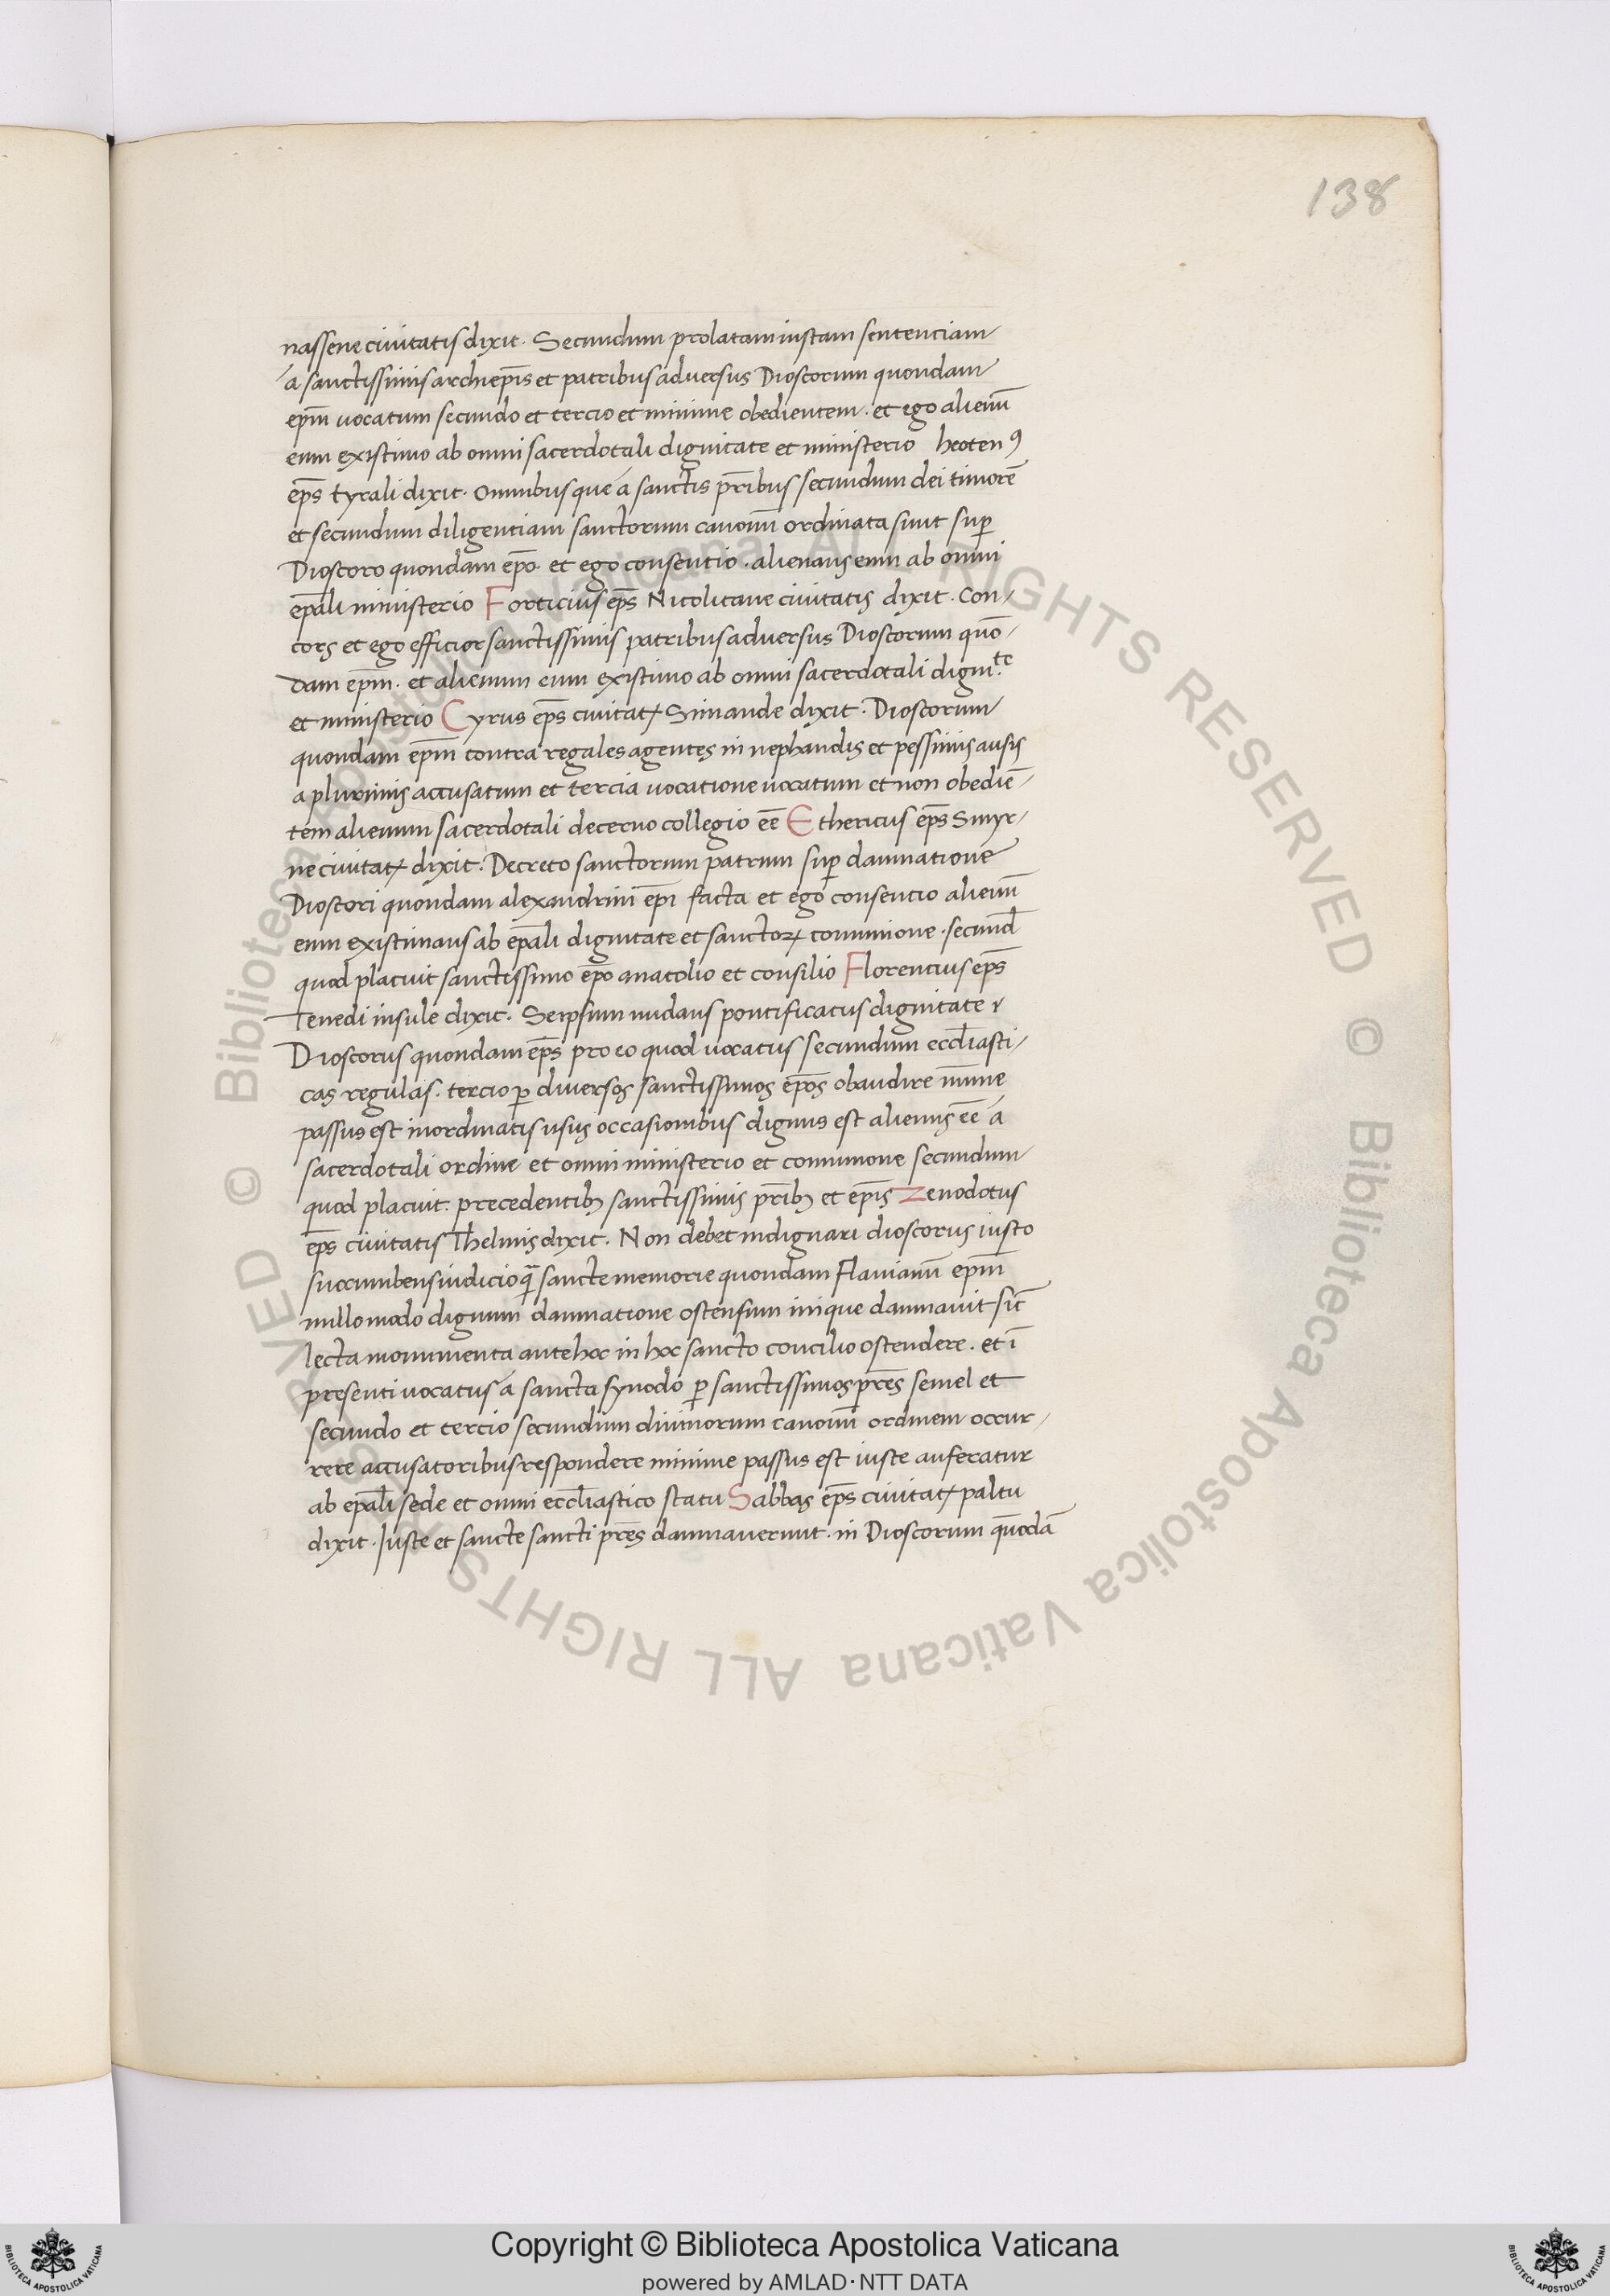 138
nassene ciuitatis dixit. Secundum prolatam iustam sentenciam
a sanctissimis archiep̄is et patribus adversus Dioscorum quondam
ep̄m uocatum secundo et tercio et minime obedientem. et ego alienū
eum existimo ab omni sacerdotali dignitate et ministerio heotenꝰ
ep̄s tyrali dixit. Omnibus que a sanctis pr̄ibus secundum dei timorē
et secundum diligentiam sanctorum canonū ordinata sunt sup̄
Dioscoro quondam ep̄o. et ego consentio. alienans eum ab omni
ep̄ali ministerio Forticius ep̄s Nicolitane ciuitatis dixit. Con-
cors et ego efficior sanctissimis patribus adversus Dioscorum quō-
dam ep̄m. et alienum eum existimo ab omni sacerdotali digni.te
et ministerio Cyrus ep̄s ciuitatꝭ Simande dixit. Dioscorum
quondam ep̄m contra regales agentes in nephandis et pessimis ausis
a plurimis accusatum et tercia uocatione uocatum et non obediē-
tem alienum sacerdotali decerno collegio eē Ethericus ep̄s Smyr-
ne ciuitatꝭ dixit. Decreto sanctorum patrum sup̄ damnatione
Dioscori quondam alexandrini ep̄i facta et ego consencio alienū
eum existimans ab ep̄ali dignitate et sanctoꝝ comunione. secund̄
quod placuit sanctissimo ep̄o anatolio et consilio Florencius ep̄s
Tenedi insule dixit. Seipsum nudans pontificatus dignitate
Dioscorus quondam ep̄s pro eo quod uocatus secundum eccl̄iasti-
cas regulas. tercio ꝑ diversos sanctissimos ep̄os obaudire mīme
passus est inordinatis usus occasionibus dignus est alienus eē a
sacerdotali ordine et omni ministerio et comunione secundum
quod placuit. precedentibꝫ sanctissimis pr̄ibꝫ et ep̄is Zenodotus
ep̄s ciuitatis Thelmis dixit. Non debet indignari dioscorus iusto
succumbens iudicio q̄ sancte memorie quondam Flauianū ep̄m
nullo modo dignum damnatione ostensum inique damnauit sic̄
lecta monumenta ante hoc in hoc sancto concilio ostendere. et ī
presenti uocatus a sancta synodo ꝑ sanctissimos pr̄es semel et
secundo et tercio secundum diuinorum canonū ordinem occur-
rere accusatoribus respondere minime passus est iuste auferatur
ab ep̄ali sede et omni eccl̄iastico statu Sabbas ep̄s ciuitatꝭ paltu
dixit. Iuste et sancte sancti pr̄es damnauerunt. in Dioscorum quōdā
© Biblioteca Apostolica Vaticana ALL RIGHTS RESERVED
© Biblioteca Apostolica Vaticana ALL RIGHTS RESERVED
BIBLIOTECA APOSTOLICA VATICANA
Copyright © Biblioteca Apostolica Vaticana
powered by AMLAD·NTT DATA
BIBLIOTECA APOSTOLICA VATICANA